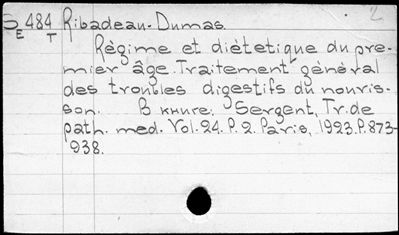 S 484 Ribadeau-Dumas 2
E T
Règime et diètetique du pre-
mier âge. Traitement général
des troubles digestifs du nouris-
son. В книге: Sergent, Tr. de
path. med. Vol. 24. P. 2. Paris, 1923. P. 873-
938.